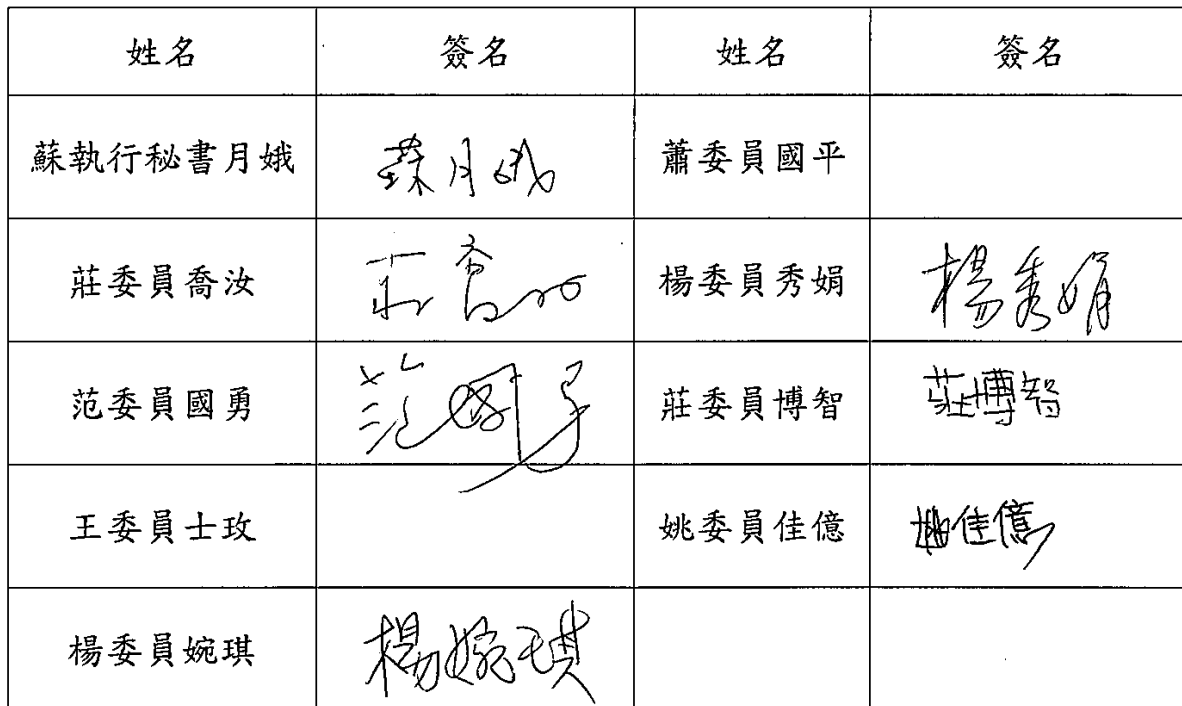 姓名 簽名 姓名 簽名
蘇執行秘書月娥 蘇月娥 蕭委員國平
莊委員喬汝 莊喬汝 楊委員秀娟 楊秀娟
范委員國勇 范國勇 莊委員博智 莊博智
王委員士玫 姚委員佳億 姚佳億
楊委員婉琪 楊婉琪